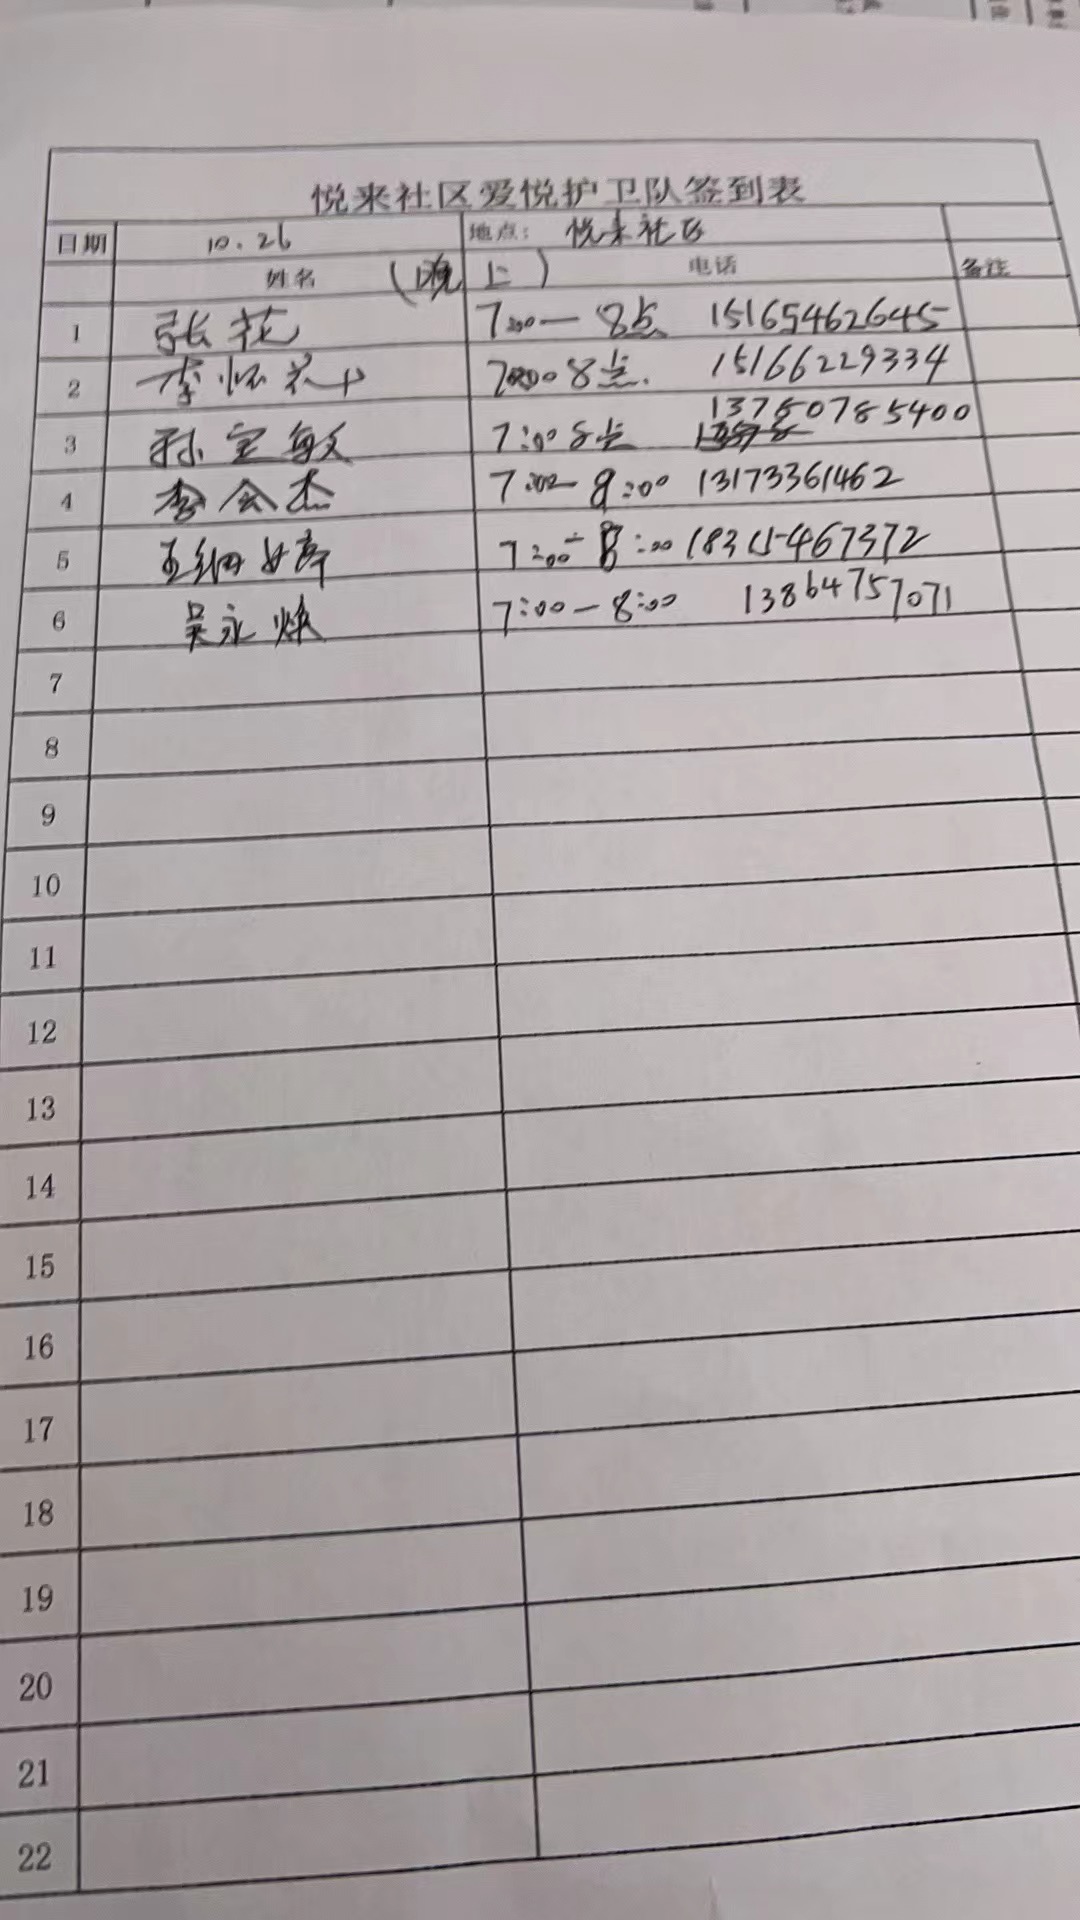 悦来社区爱悦护卫队签到表
日期 10.26 地点： 悦来社区
姓名 （晚上） 电话 备注
1 张花 7:00—8点 15165462645
2 李怀花 7:00 8点. 15166229334
3 孙宝敏 7:00 8点 13780785400
4 李会杰 7:00-8:00 13173361462
5 王 7:00-8:00 18315467372
6 吴永焕 7:00-8:00 13864757071
7
8
9
10
11
12
13
14
15
16
17
18
19
20
21
22